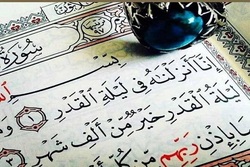 سُورَةُ
بِسْمِ اللَّهِ
إِنَّا أَنزَلْنَٰهُ فِي لَيْلَةِ الْقَدْرِ ١
لَيْلَةُ الْقَدْرِ خَيْرٌ مِّنْ أَلْفِ شَهْرٍ
بِإِذْنِ رَبِّهِم مِّن كُلِّ